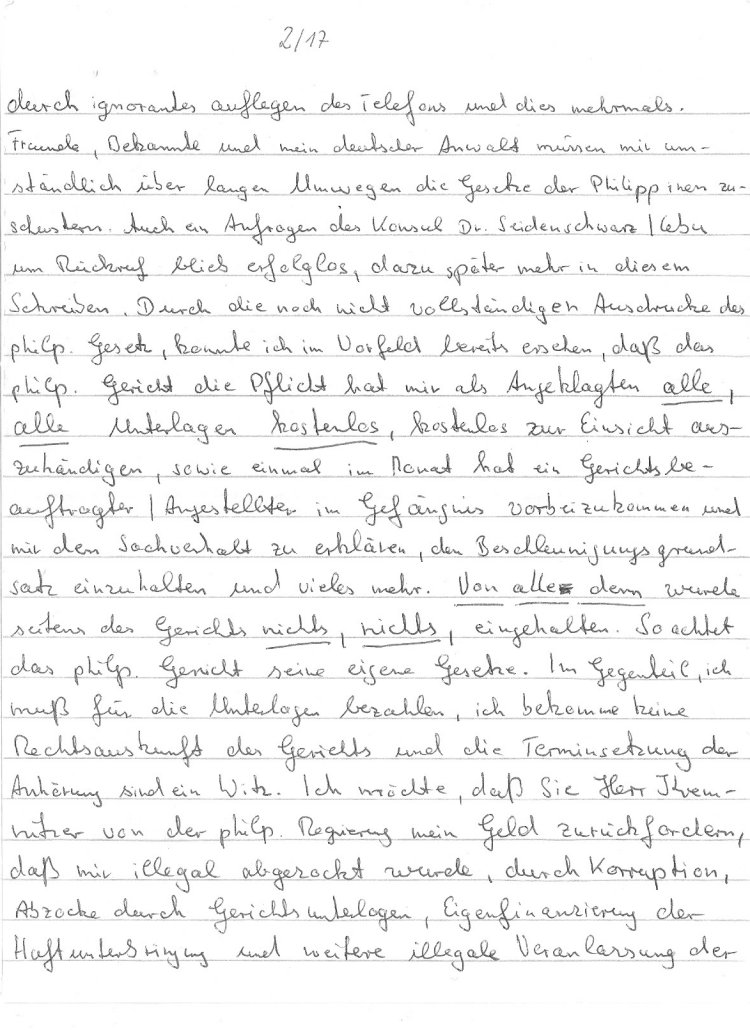 2/17
durch ignorantes auflegen des Telefons und dies mehrmals.
Freunde, Bekannte und mein deutscher Anwalt müssen mir um-
ständlich über langen Umwegen die Gesetze der Philippinen zu-
schustern. Auch ein Anfragen des Konsul Dr. Seidenschwarz / Cebu
um Rückruf blieb erfolglos, dazu später mehr in diesem
Schreiben. Durch die noch nicht vollständigen Ausdrucke des
philp. Gesetz, konnte ich im Vorfeld bereits ersehen, daß das
philp. Gericht die Pflicht hat mir als Angeklagten alle,
alle Unterlagen kostenlos, kostenlos zur Einsicht aus-
zuhändigen, sowie einmal im Monat hat ein Gerichtsbe-
auftragter / Angestellter im Gefängnis vorbeizukommen und
mir den Sachverhalt zu erklären, den Beschleunigungsgrund-
satz einzuhalten und vieles mehr. Von alle dem wurde
seitens des Gerichts nichts, nichts, eingehalten. So achtet
das philp. Gericht seine eigene Gesetze. Im Gegenteil, ich
muß für die Unterlagen bezahlen, ich bekomme keine
Rechtsauskunft des Gerichts und die Terminsetzung der
Anhörung sind ein Witz. Ich möchte, daß Sie Herr
von der philp. Regierung mein Geld zurückfordern,
daß mir illegal abgezockt wurde, durch Korruption,
Abzocke durch Gerichtsunterlagen, Eigenfinanzierung der
Haftunterbringung und weitere illegale Veranlassung der